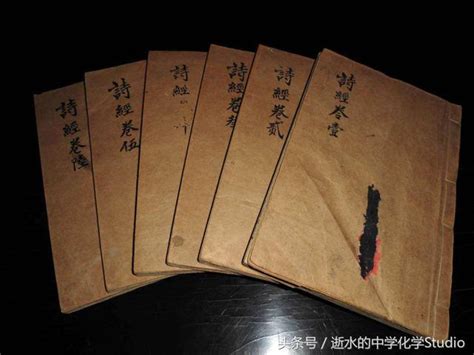 詩經卷壹
詩經卷貳
詩經卷叁
詩經
詩經卷伍
詩經卷陸
头条号／逝水的中学化学Studio